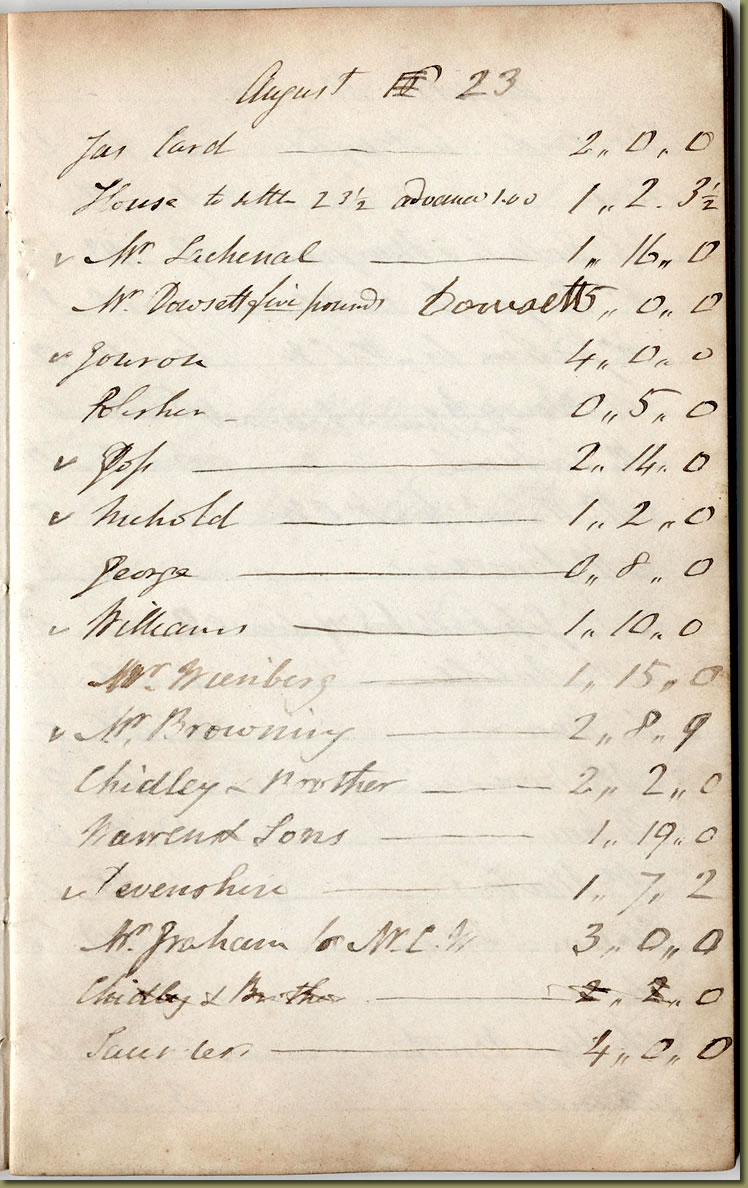 August 23
Jas Card 2 ,, 0 ,, 0
House to settle 2 3½ advance 1.00 1 ,, 2 . 3½
✓ Mr. Lachenal 1 ,, 16 ,, 0
Mr. Dowsett five pounds Dowsett 5 ,, 0 ,, 0
✓ 4 ,, 0 ,, 0
0 ,, 5 ,, 0
✓ 2 ,, 14 ,, 0
✓ Nickold 1 ,, 2 ,, 0
George 0 ,, 8 ,, 0
✓ Williams 1 ,, 10 ,, 0
Mr. 1 ,, 15 ,, 0
✓ Mr. Browning 2 ,, 8 ,, 9
Chidley & Brother 2 ,, 2 ,, 0
Warren & Sons 1 ,, 19 ,, 0
✓ Devenshire 1 ,, 7 ,, 2
Mr. Graham for Mr. C. W 3 ,, 0 ,, 0
Chidley & Brother 2 ,, 2 ,, 0
Saunders 4 ,, 0 ,, 0